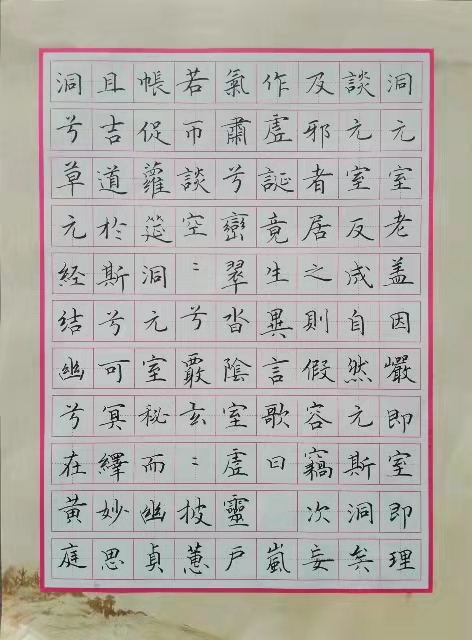 洞元室老盖因嚴即室即理
談元室反成自然元斯洞矣
及邪者居之則假容竊次妄
作虛誕竟生異言歌曰 嵐
氣肅兮巒翠沓陰室虛靈戶
若帀談空〻兮覈玄〻披蕙
帳促蘿筵洞元室秘而幽貞
且吉道於斯兮可冥繹妙思
洞兮草元経結幽兮在黃庭